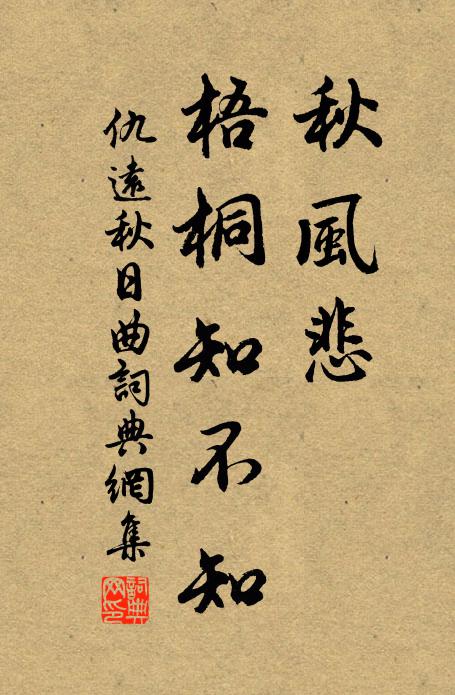 秋風悲
梧桐知不知
仇遠秋日曲詞典網集
詞典網印